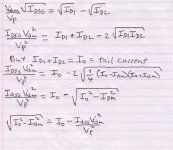 Vdm/Vp √IDSS = √ID1 - √ID2
IDSS Vdm²/Vp² = ID1 + ID2 - 2√ID1ID2
But ID1 + ID2 = Io = tail current
IDSS Vdm²/Vp² = Io - 2√(1/4 (Io - Idm)(Io + Idm))
IDSS Vdm²/Vp² = Io - √(Io² - Idm²)
√(Io² - Idm²) = Io - IDSS Vdm²/Vp²